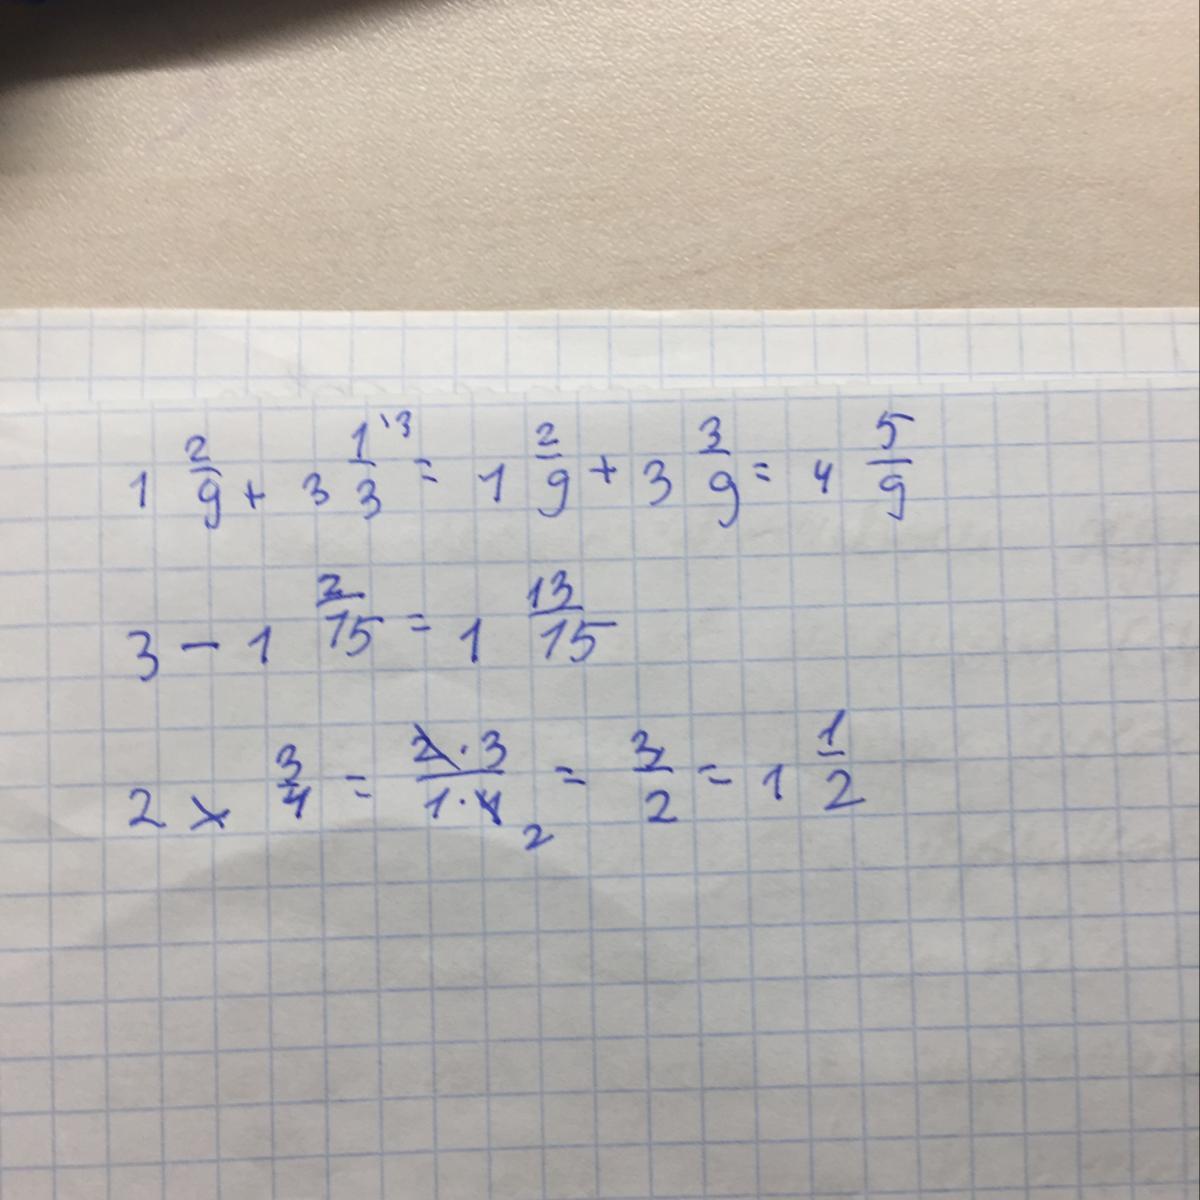 1 2/9 + 3 1/3 '3 = 1 2/9 + 3 3/9 = 4 5/9
3 - 1 2/15 = 1 13/15
2 × 3/4 = 2·3/1·4 2 = 3/2 = 1 1/2